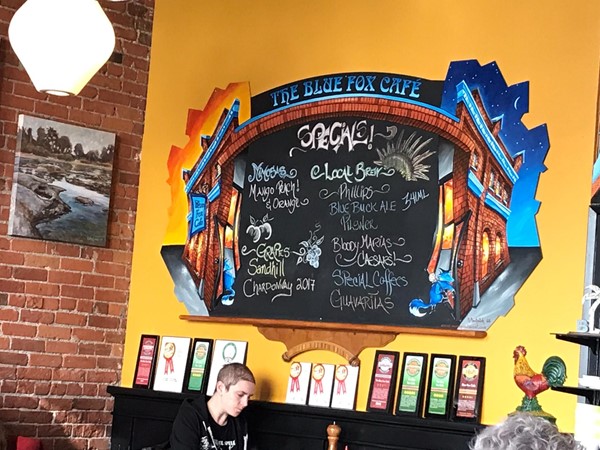 THE BLUE FOX CAFÉ
SPECIALS!
MIMOSAS
MANGO PEACH!
& ORANGE
GRAPES
SANDHILL
CHARDONNAY 2017
LOCAL BREW
PHILLIPS
BLUE BUCK ALE
PILSNER
341ML
BLOODY MARYS
CAESARS!
SPECIAL COFFEES